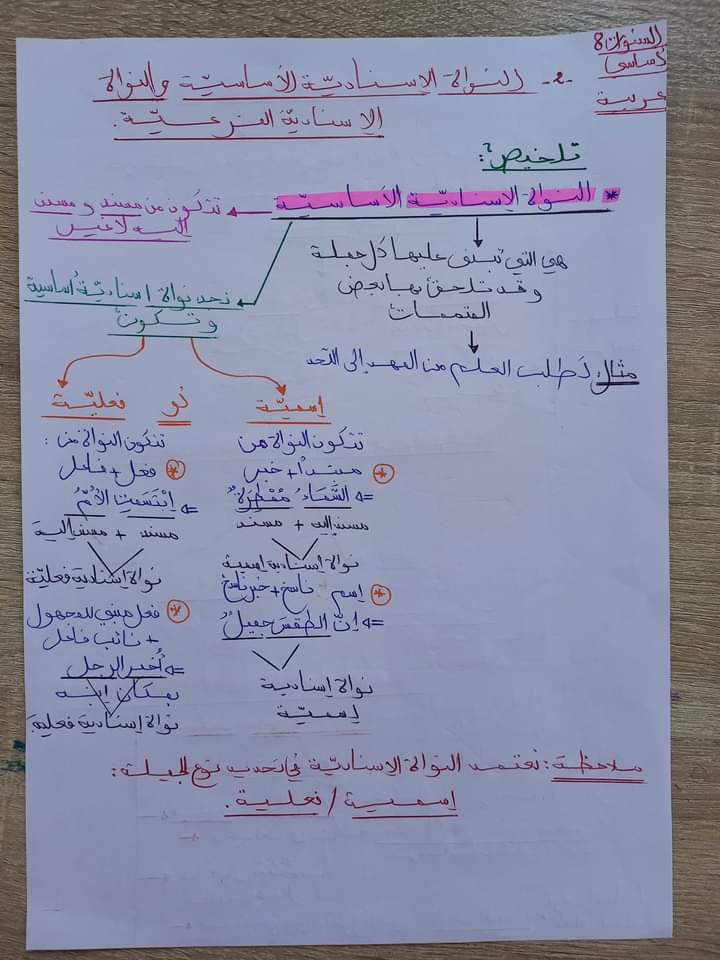 السنوات 8
أساسي
عربية
-2- النواة الإسنادية الأساسيّة والنواة
الإسناديّة الفرعيّة.
تلخيص:
* النواة الإسناديّة الأساسيّة
تتكون من مسند و مسند
إليه لا غير
هي التي تبنى عليها كل جملة
و قد تلحق بها بعض
المتممات
مثال: أطلب العلم من المهد إلى اللحد
نجد نواة إسناديّة أساسية
وتكون
إسميّة
أو
فعليّة
تتكون النواة من
مبتدأ + خبر
السَّمَاءُ مُمْطِرَةٌ
مسند إليه + مسند
نواة إسنادية إسمية
إسم ناسخ + خبر ناسخ
إنّ الطقسَ جميلٌ
نواة إسنادية
إسميّة
تتكون النواة من:
فعل + فاعل
اِبْتَسَمَتِ الأُمُّ
مسند + مسند إليه
نواة إسنادية فعليّة
فعل مبني للمجهول
+ نائب فاعل
أُخبر الرجل
بمكان ابنه
نواة إسنادية فعلية.
ملاحظة: نعتمد النواة الإسناديّة في تحديد نوع الجملة:
إسمية / فعلية.